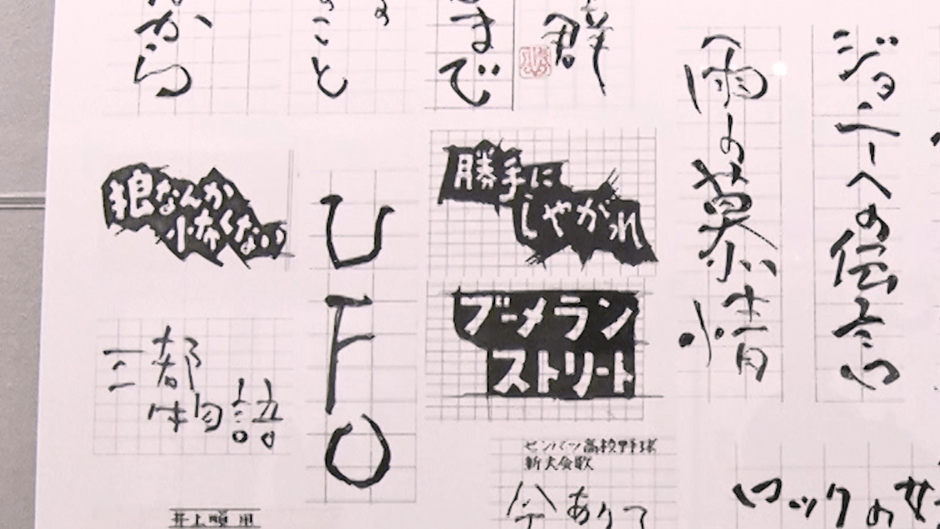 から
こと
まで
群
雨の慕情
ジョニーへの伝言
狼なんか
怖くない
UFO
勝手に
しやがれ
ブーメラン
ストリート
三都
物語
センバツ高校野球
新大会歌
今ありて
井上順 用
ロックの